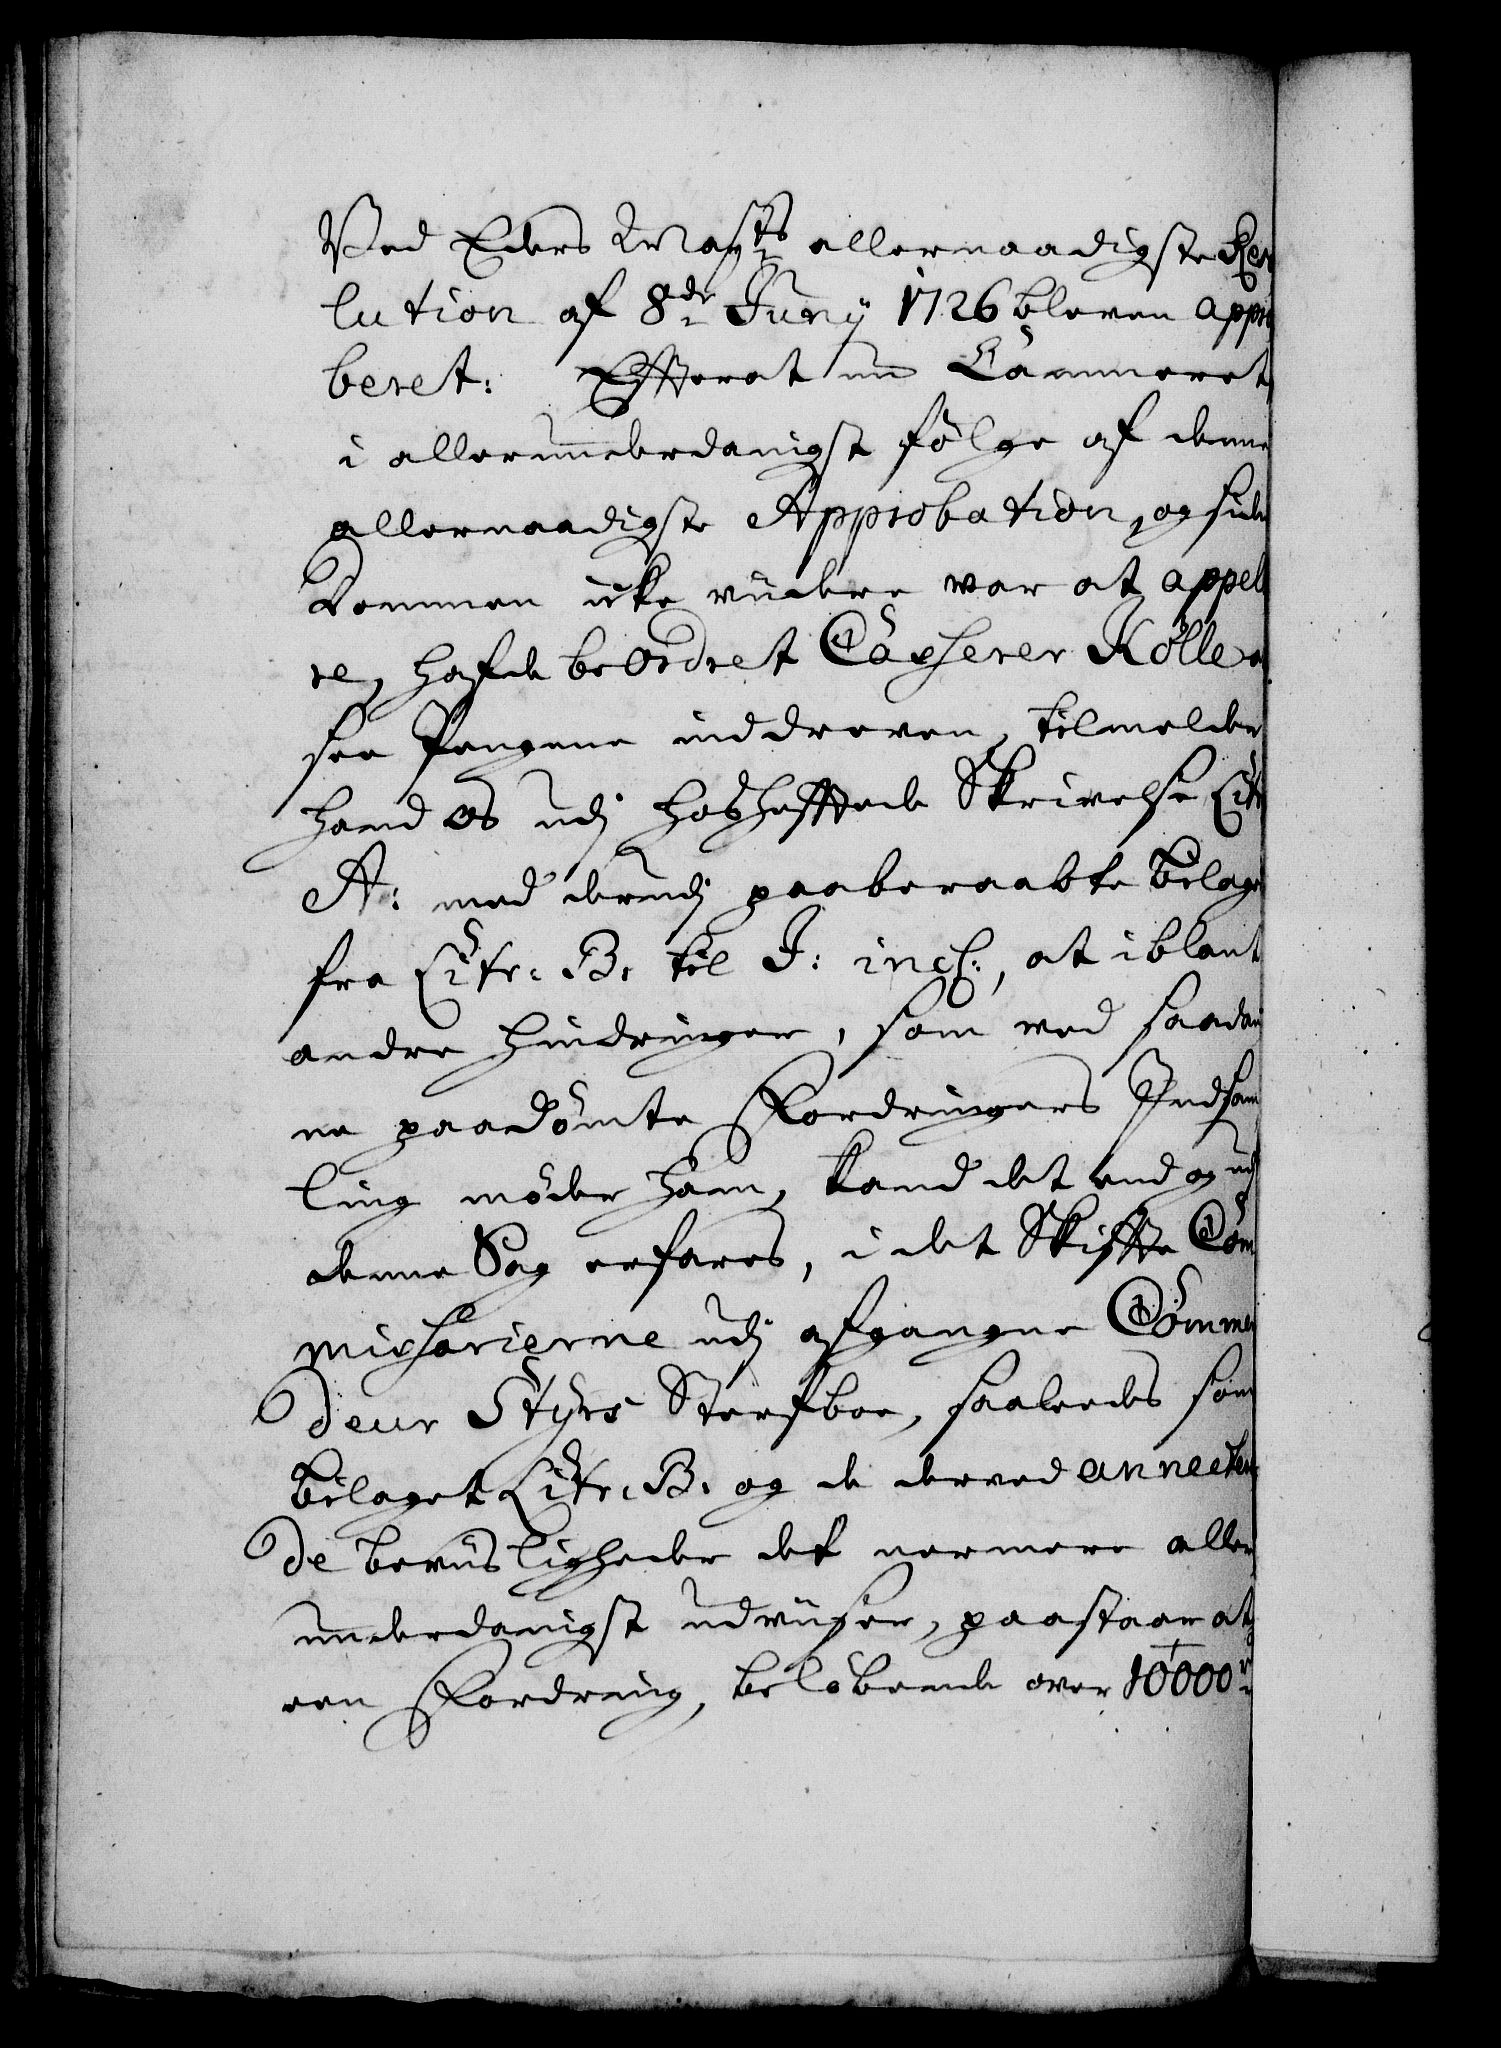 Ved Eders Mayts allernaadigste Reso
lution af 8de Juny 1726 bleven appro
beret: Efterat nu Cammeret
i allerunderdanigst følge af denne
allernaadigste Approbation, og siden
Dommen icke videre var at appelle
re, hafde beordret Casserer Kølle at
see Pengene inddreven, tilmelder
hand os udj hoshæftede Skrivelse Litr.
A: med derudj paaberaabte bilager
fra Litr: B. til J: incl:, at iblant
andre hindringer, som ved saadan
ne paadømte Fordringers Indsam
ling møder ham, kand det end og udj
denne Sag erfares, i det Skifte Com
missarierne udj afgangne Comman
deur Styrs Sterfboe, saaledes som
bilaget Litr. B. og de derved annecteren
de beviisligheder det nermere aller
underdanigst udviiser, paastaar at
een Fordring, beløbende over 10000 rd